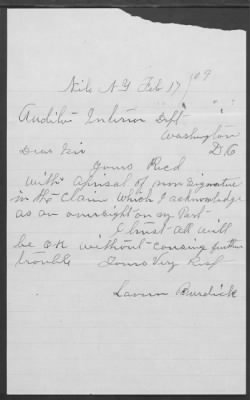 Nile N.Y Feb 17 / 09
Auditor Interior Dept " "
Washington
D C
Dear Sir
Yours Recd
with aprisal of non signature
in the claim which I acknowledge
as an oversight on my Part
I trust all will
be OK without causing further
trouble Yours Very Rspf
Burdick